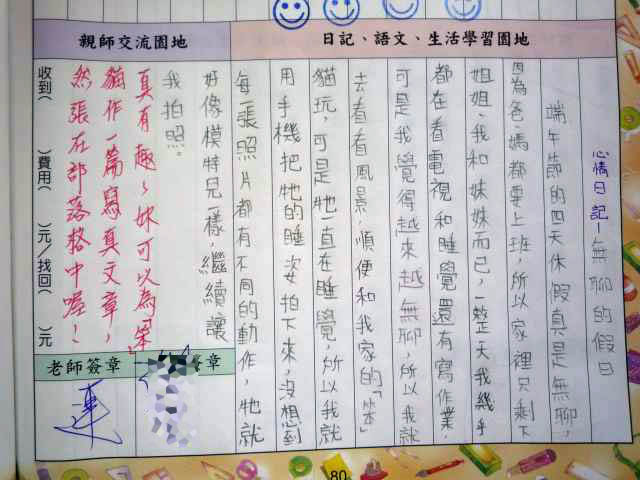 日記、語文、生活學習園地
心情日記—無聊的假日
端午節的四天休假真是無聊,
因為爸、媽都要上班,所以家裡只剩下
姐姐、我和妹妹而已,一整天我幾乎
都在看電視和睡覺還有寫作業,
可是我覺得越來越無聊,所以我就
去看看風景,順便和我家的「笨」
貓玩,可是牠一直在睡覺,所以我就
用手機把牠的睡姿拍下來,沒想到
每張照片都有不同的動作,牠就
好像模特兒一樣,繼續讓
我拍照。
親師交流園地
真有趣~妹可以為「笨」
貓作一篇寫真文章,
然張在部落格中喔!
收到( )費用( )元/找回( )元
老師簽章
簽章
連
80